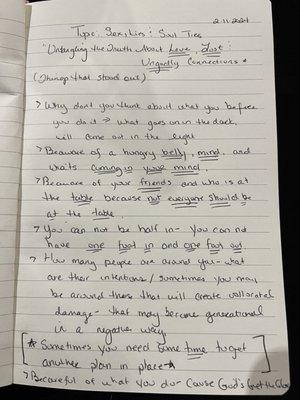 2-11-2024
Type, Sex, Lies: Soul Ties
"Untangling the Truth About Love, Lust:
Ungodly Connections*
(Things that stood out)
> Why don't you think about what you do before
you do it → what goes on in the dark,
will come out in the light
> Beaware of a hungry belly, mind, and
what's coming in your mind.
> Beaware of your friends and who is at
the table because not everyone should be
at the table.
> You can not be half in - you can not
have one foot in and one foot out
> How many people are around you - what
are their intentions / sometimes you may
be around those that will create collateral
damage - that may become generational
in a negative way
* Sometimes you need some time to get
another plan in place *
> Becareful of what you do - Cause God's Get the